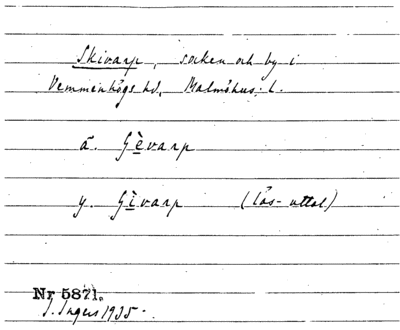 Skivarp, socken och by i
Vemmenhögs hd, Malmöhus l.
ä. Gèvarp
y. Gìvarp (läs-uttal)
Nr 5871.
I. Ingers 1935.